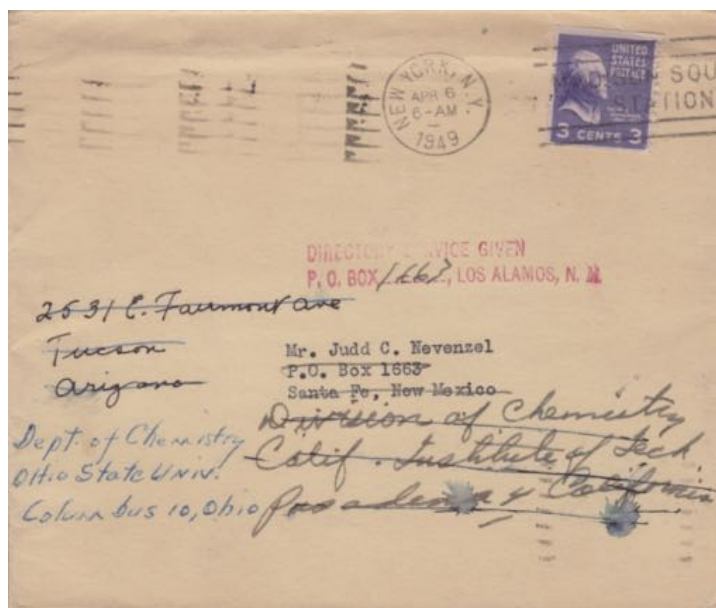 NEW YORK, N.Y.
APR 6
6-AM
1949
UNITED
STATES
POSTAGE
3 CENTS 3
SQU
STATION
DIRECTORY SERVICE GIVEN
P. O. BOX 1663, LOS ALAMOS, N. M
2531 E. Fairmont Ave
Tucson
Arizona
Mr. Judd C. Nevenzel
P.O. Box 1663
Santa Fe, New Mexico
Division of Chemistry
Calif. Institute of Tech
Pasadena, California
Dept of Chemistry
Ohio State Univ.
Columbus 10, Ohio